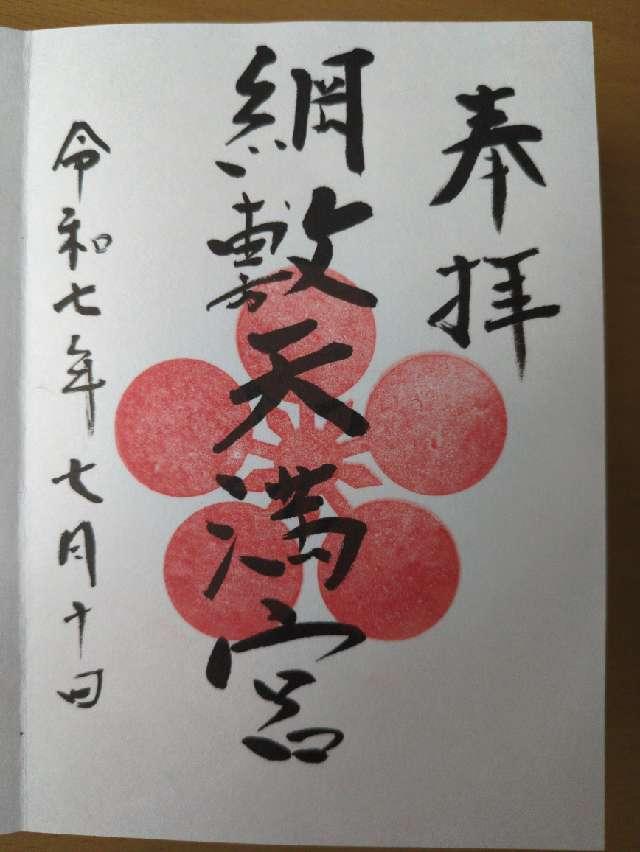 奉拝
綱敷天満宮
令和七年七月十日